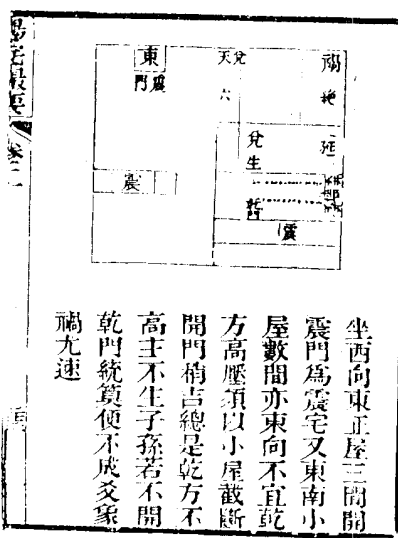 陽宅撮要 卷二
禍 絶
延
兌 天 六
兌 生
震
東
震門
震
坐西向東正屋三間開
震門為震宅又東南小
屋數間亦東向不宜乾
方高壓須以小屋截斷
開門稍吉總是乾方不
高主不生子孫若不開
乾門統算便不成爻象
禍尤速